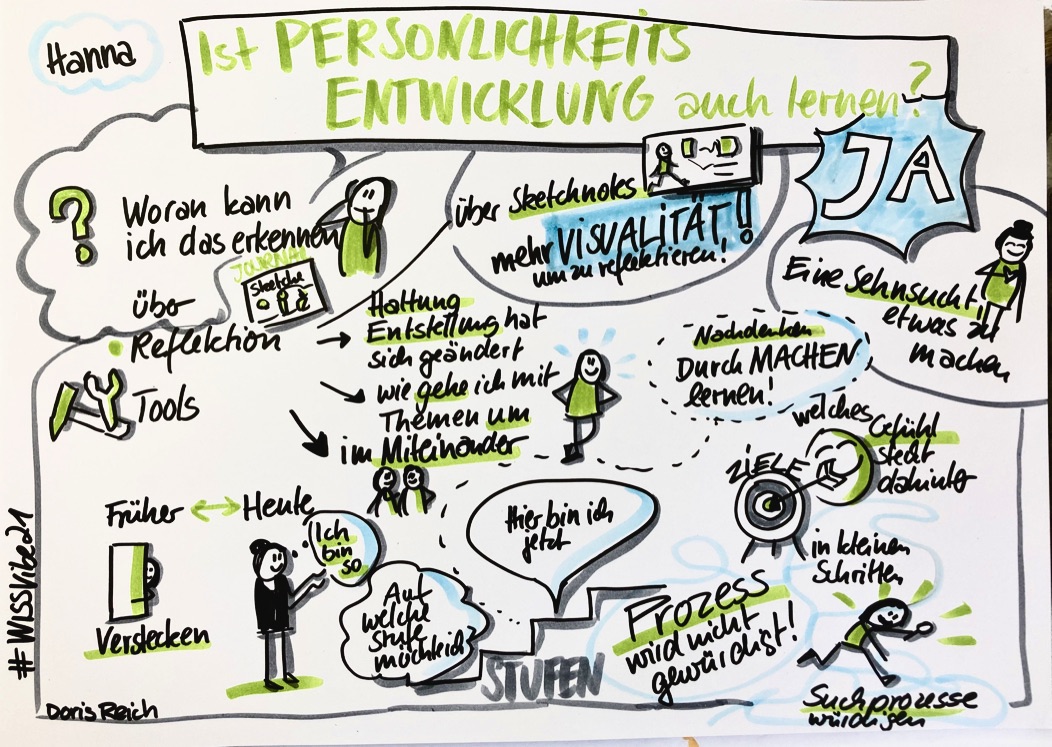 Hanna
Ist PERSONLICHKEITS
ENTWICKLUNG auch lernen?
JA
?
Woran kann
ich das erkennen
JOURNAL
Sketche
über Sketchnotes
mehr VISUALITÄT!!
um zu reflektieren!
Eine Sehnsucht,
etwas zu
machen
übo
Reflektion
Tools
Haltung
Entstellung hat
sich geändert
wie gehe ich mit
Themen um
im Miteinander
Nachdenken
Durch MACHEN
lernen!
welches Gefühl
steckt
dahinter
ZIELE
in kleinen
Schritten
Früher ↔ Heute
Verstecken
Ich
bin
so
Hier bin ich
jetzt
Auf
welche
Stufe
möchte ich
STUFEN
Prozess
wird nicht
gewürdigt!
Suchprozesse
würdigen
#WISSVibe21
Doris Reich